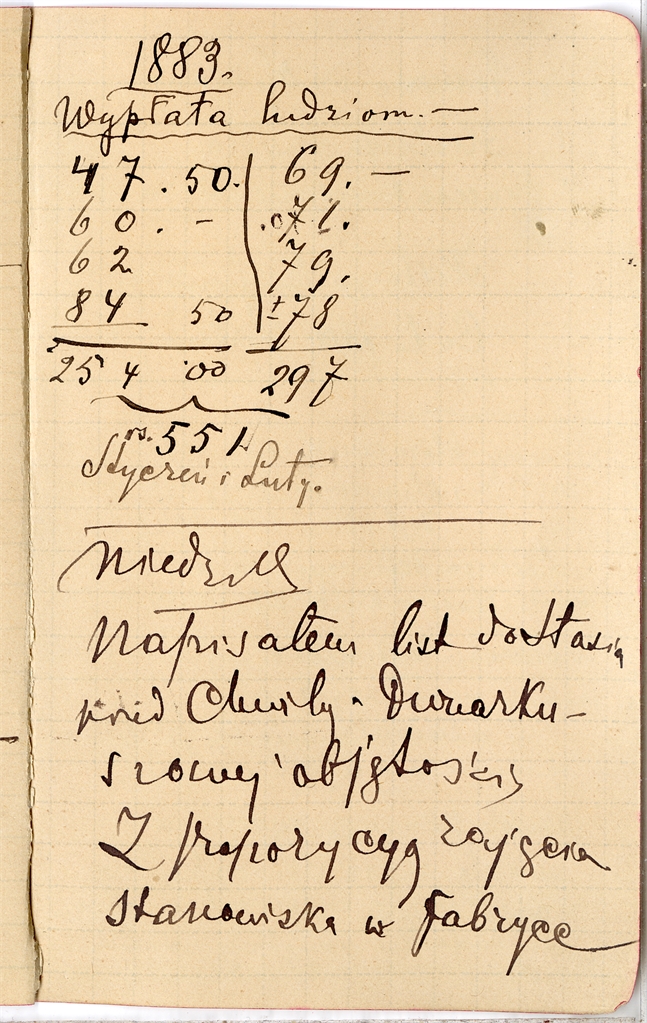 1883.
Wypłata ludziom. —
47. 50. 69. —
60. - 71.
62 79.
84 50 78
254 00 297
rs. 551
Styczeń i Luty.
Niedziela
Napisałem list do Stasia
przed Chwilą. Dwuarku-
szowej objętości
Z propozycyą zajęcia
stanowiska w Fabryce